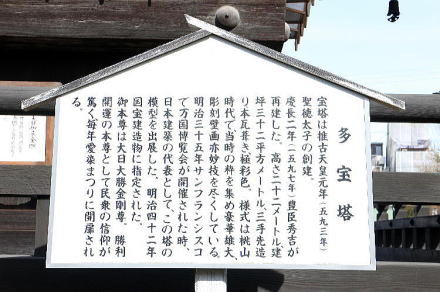 多宝塔
宝塔は惟古天皇元年(五九三年)
聖徳太子の創建。
慶長二年(一五九七年)豊臣秀吉が
再建した。高さ二十二メートル、建
坪三十二平方メートル、三手先造
り本瓦葺き極彩色、様式は桃山
時代で当時の粋を集め豪華雄大、
彫刻壁画亦妙技を尽くしている。
明治三十五年サンフランシスコ
で万国博覧会が開催された時、
日本建築の代表として、この塔の
模型を出展した。明治四十二年
国宝建造物に指定された。
御本尊は大日大勝金剛尊、勝利
開運の本尊として民衆の信仰が
篤く毎年愛染まつりに開扉され
る。